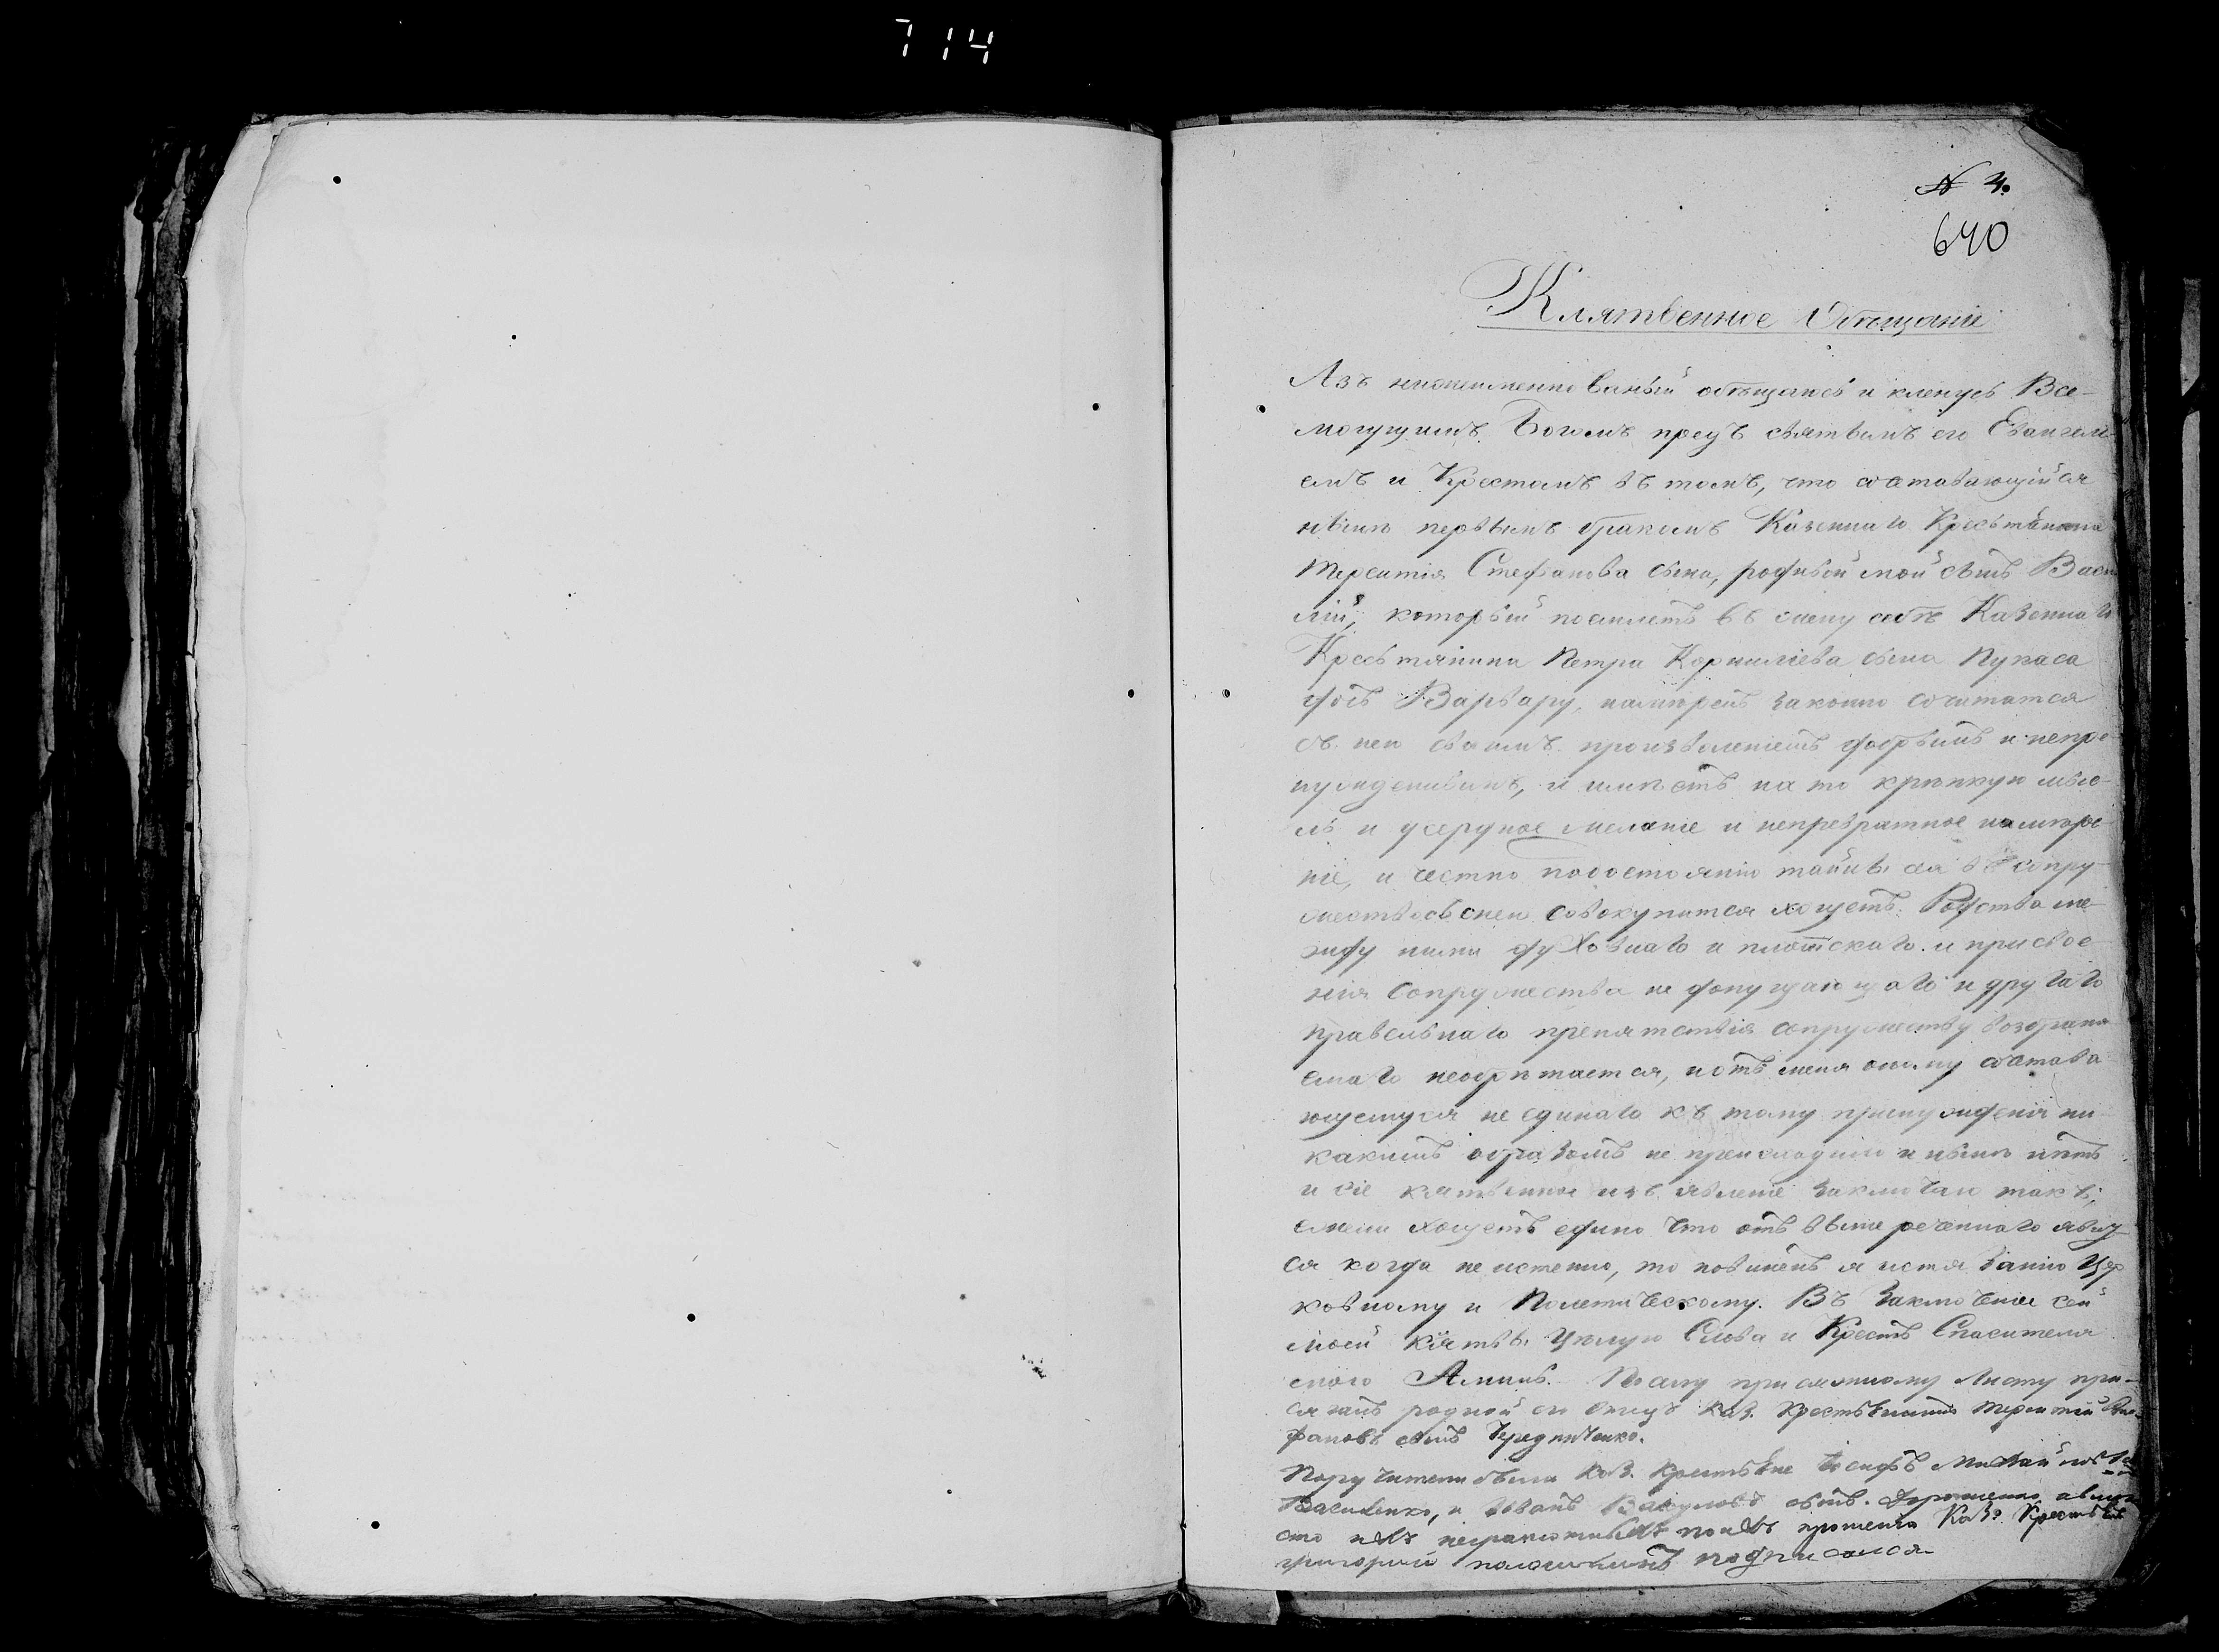 714
№ 4.
640
Клятвенное Обѣщаніе
Азъ нижеименнованый обѣщаюсь и кленусь Все-
могущимъ Богомъ предъ святымъ его Евангели-
емъ и Крестомъ въ томъ, что сочетавающійся
нынѣ первымъ бракомъ Казеннаго Крестьянина
Терентія Стефанова сына, родный мой сынъ Васи
лій, который поемлетъ въ жену себѣ Казеннаго
Крестьянина Петра Корниліева сына Пукаса
дочь Варвару, намѣренъ законно сочитатся
съ нею своимъ произволеніемъ добрымъ и непре-
нужденнымъ, и имѣетъ на то крѣпкую мыс-
ль и усердное желаніе и непревратное намѣре-
ніе, и честно подостоянію тайны сея въ сопру-
жество съ нею совокупится хощетъ. Родства ме-
жду ними духовнаго и плотскаго и присвое-
нія Сопружества не допущающаго и другаго
правельнаго препятствія сопружеству возбраня-
емаго необрѣтается, и отъ меня оному сочетава
ющемуся не единаго къ тому принужденія ни-
какимъ образомъ не преисходило и нынѣ нѣтъ
и сіе клятвенное изъявленіе заключаю такъ;
ежели хощетъ едино что отъ вышереченнаго явит
ся когда не истенно, то повиненъ я истязанію Цер
ковному и Полетическому. Въ Заключеніе сей
моей клятвы Цѣлую Слова и Крестъ Спасителя
моего Аминь. По сему присяжному Листу при-
сягалъ родной его Отецъ Каз. Крестьянинъ Терентій Сте-
фановъ сынъ Чередниченко.
Поручители были Каз. Крестьяне Іосифъ Михайловъ
Василенко, и Иванъ Вакуловъ сынъ Дорошенко, а вмѣ
сто ихъ неграмотныхъ поихъ прошенію Каз. Крестьян
Григорій подписался